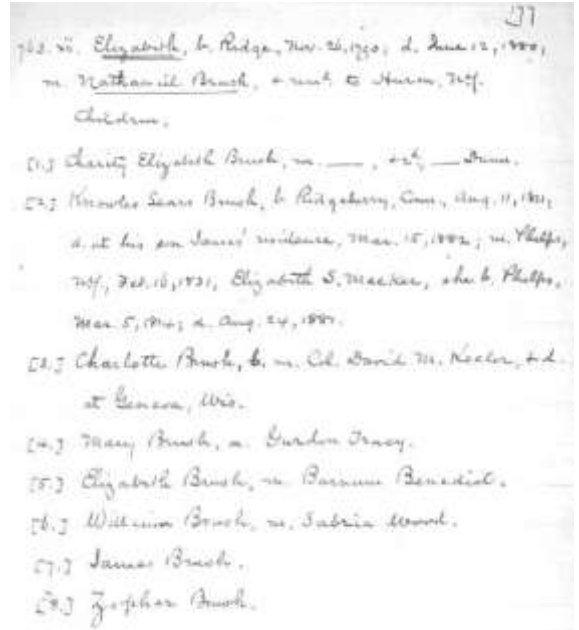 177
xi. Elizabeth, b. Ridge, Nov. 26, 1790; d. June 12, 1880;
m. Nathaniel Brush, & to Huron, N.Y.
Children.
[1.] Charity Elizabeth Brush, m. ——, & 2d, —— Dunn.
[2.] Knowles Sears Brush, b. Ridgebury, Conn., Aug. 11,
d. at his son James' residence, Mar. 15, 1882; m. Phelps,
N.Y., Feb. 10, 1831, Elizabeth S. she b. Phelps,
Mar. 5, 1814; d. Aug. 24, 1881.
[3.] Charlotte Brush, b. m. Col. David M. Keeler, & d.
at Geneva, Wis.
[4.] Mary Brush, m. Gurdon Tracy.
[5.] Elizabeth Brush, m. Barnum Benedict.
[6.] William Brush, m. Wood.
[7.] James Brush.
[8.] Zophar Brush.